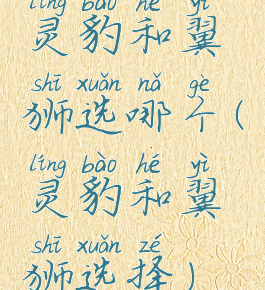 líng bào hé yì
灵豹和翼
shī xuǎn nǎ gè
狮选哪个(
líng bào hé yì
灵豹和翼
shī xuǎn zé
狮选择)